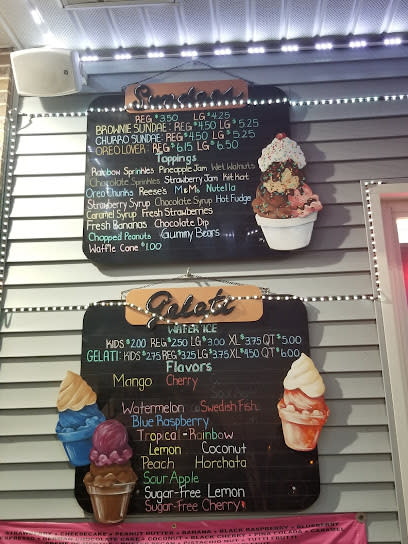 Sundaes
REG $3.50 LG $4.25
BROWNIE SUNDAE: REG $4.50 LG $5.25
CHURRO SUNDAE: REG $4.50 LG $5.25
OREO LOVER: REG $6.15 LG $6.50
Toppings
Rainbow Sprinkles Pineapple Jam Wet Walnuts
Chocolate Sprinkles Strawberry Jam Kit Kat
Oreo Chunks Reese's M&Ms Nutella
Strawberry Syrup Chocolate Syrup Hot Fudge
Caramel Syrup Fresh Strawberries
Fresh Bananas Chocolate Dip
Chopped Peanuts Gummy Bears
Waffle Cone $1.00
Gelati
WATER ICE
KIDS $2.00 REG $2.50 LG $3.00 XL $3.75 QT $5.00
GELATI: KIDS $2.75 REG $3.25 LG $3.75 XL $4.50 QT $6.00
Flavors
Mango Cherry
Watermelon Swedish Fish
Blue Raspberry
Tropical-Rainbow
Lemon Coconut
Peach Horchata
Sour Apple
Sugar-Free Lemon
Sugar-Free Cherry
STRAWBERRY • CHEESECAKE • PEANUT BUTTER • BANANA • BLACK RASPBERRY • BLUEBERRY